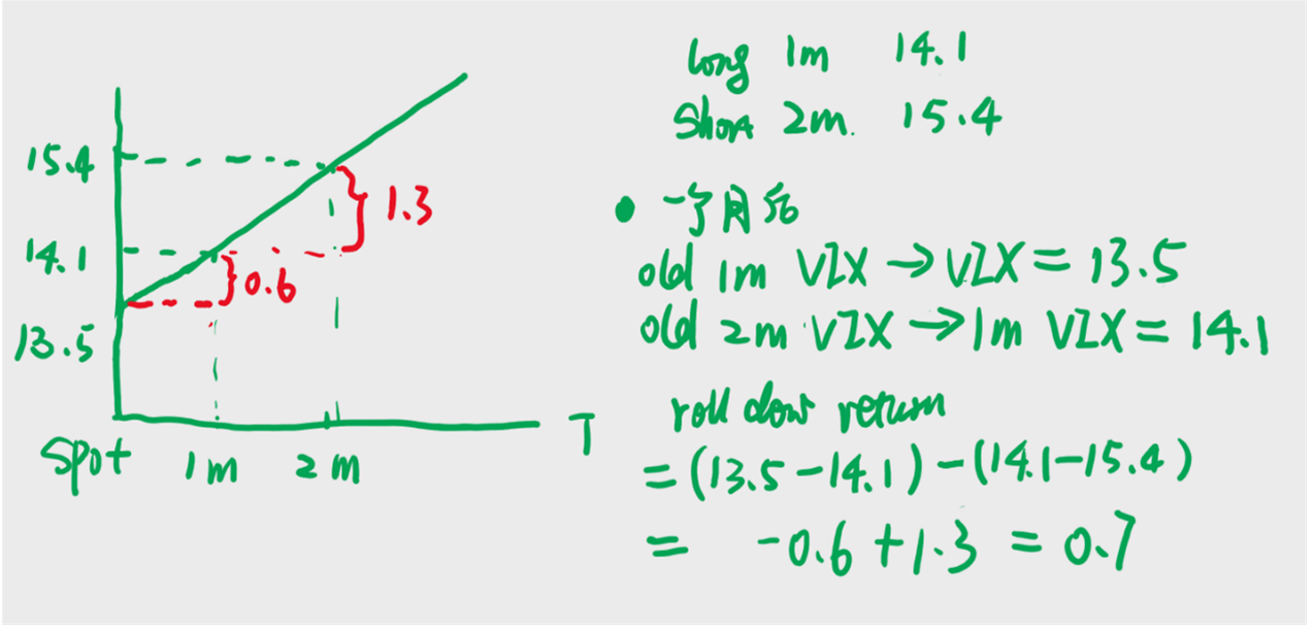 15.4
14.1
13.5
1.3
0.6
Spot 1m 2m T
long 1m 14.1
Short 2m. 15.4
• 一个月后
old 1m VIX → VIX = 13.5
old 2m VIX → 1m VIX = 14.1
roll down return
= (13.5-14.1) - (14.1-15.4)
= -0.6 + 1.3 = 0.7